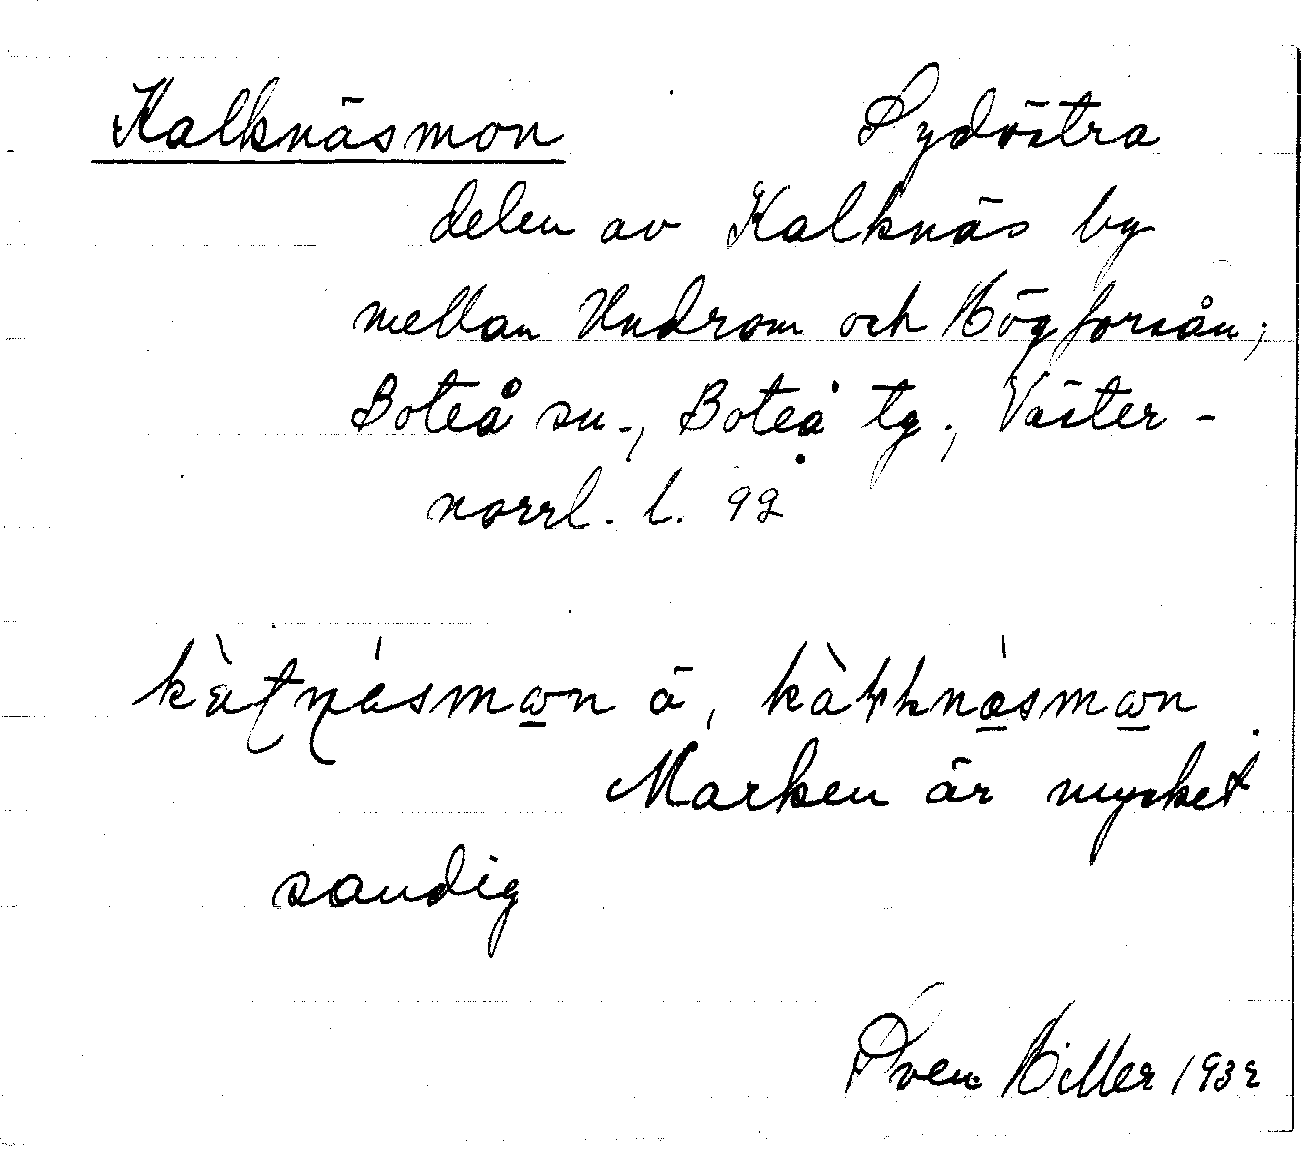 Kalknäsmon Sydöstra
delen av Kalknäs by
mellan Undrom och Högforsån;
Boteå sn., Boteå tg., Väster-
norrl. l. 92
ä,
Marken är mycket
sandig
Sven Hiller 1932